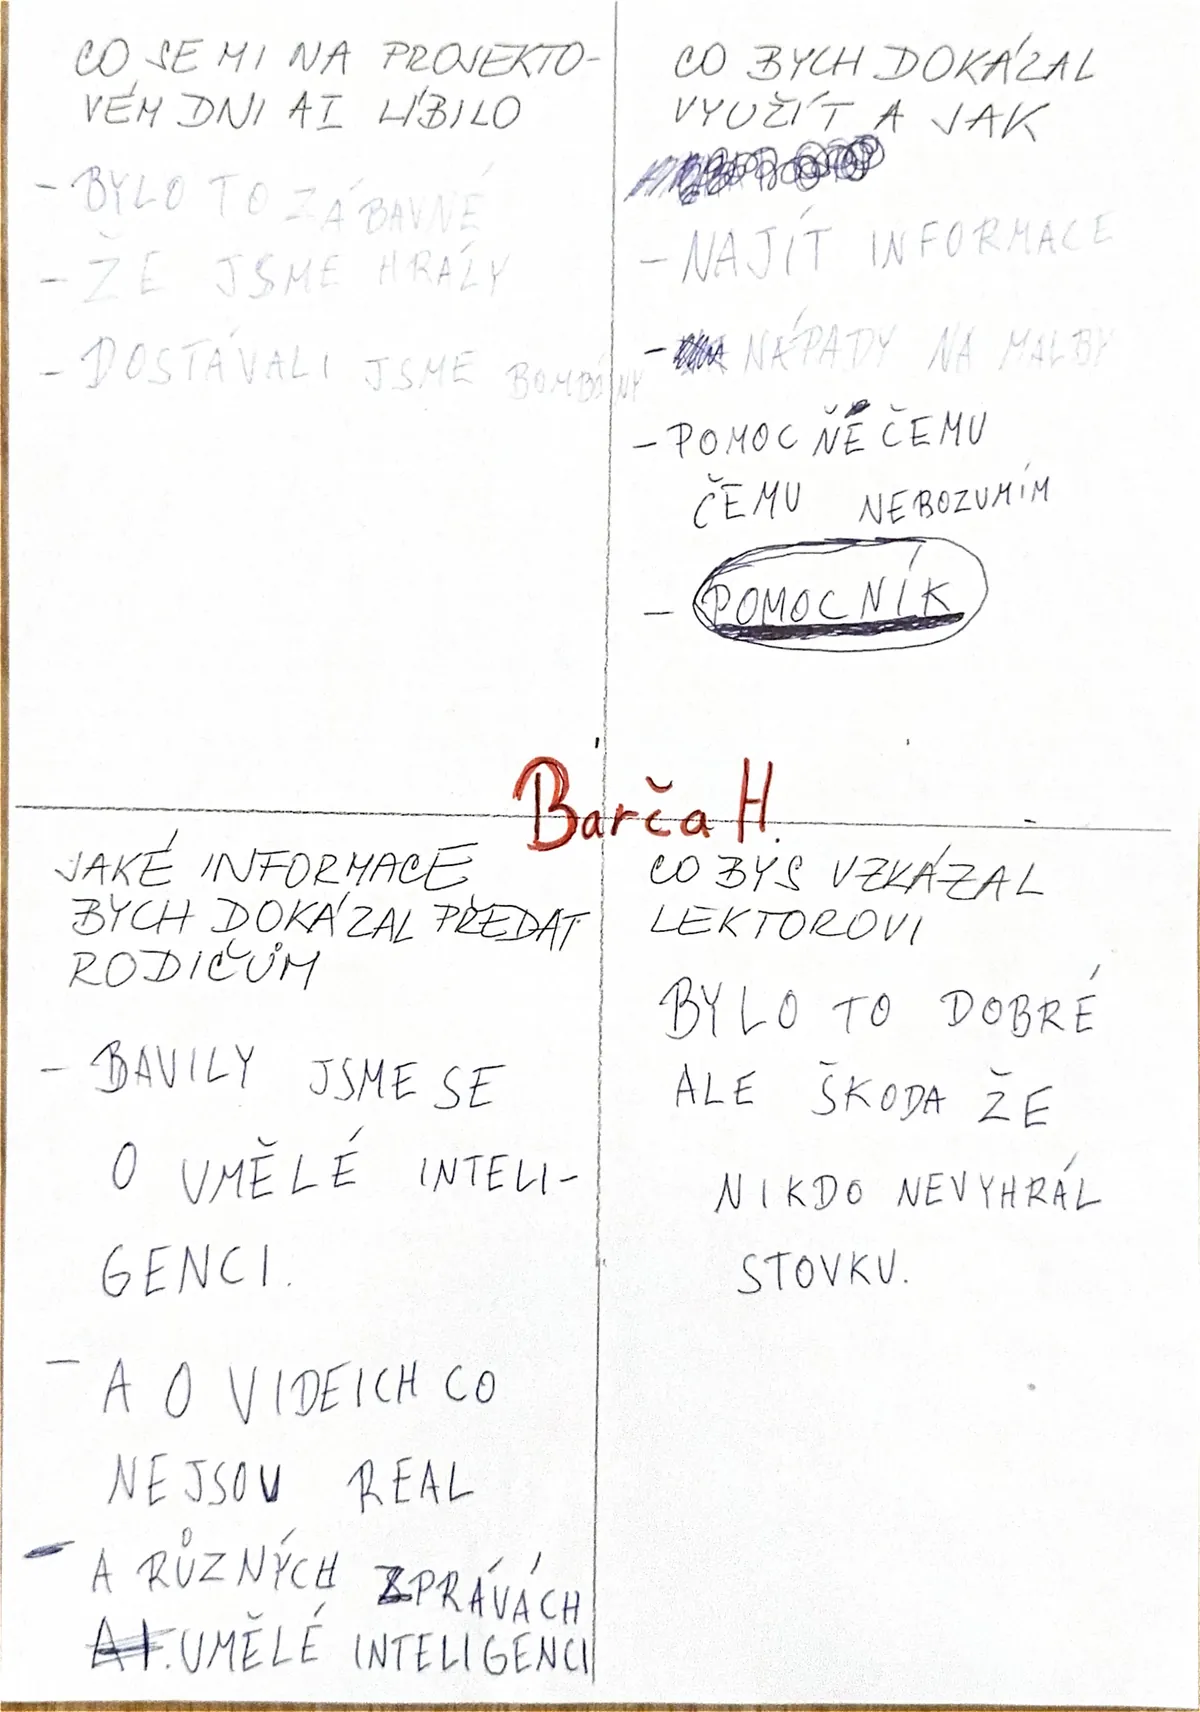 CO SE MI NA PROJEKTO-
VÉM DNI AI LÍBILO
- BYLO TO ZÁBAVNÉ
- ŽE JSME HRÁLY
- DOSTÁVALI JSME BOMBÓNY
CO BYCH DOKÁZAL
VYUŽÍT A JAK
- NAJÍT INFORMACE
- NÁPADY NA MALBY
- POMOC ŇEČEMU
ČEMU NEBOZUMÍM
- POMOCNÍK
Barča H.
JAKÉ INFORMACE
BYCH DOKÁZAL PŘEDAT
RODIČŮM
- BAVILY JSME SE
O UMĚLÉ INTELI-
GENCI.
- A O VIDEICH CO
NEJSOU REAL
- A RŮZNÝCH ZPRÁVÁCH
AI. UMĚLÉ INTELIGENCI
CO BYS VZKÁZAL
LEKTOROVI
BYLO TO DOBRÉ
ALE ŠKODA ŽE
NIKDO NEVYHRÁL
STOVKU.